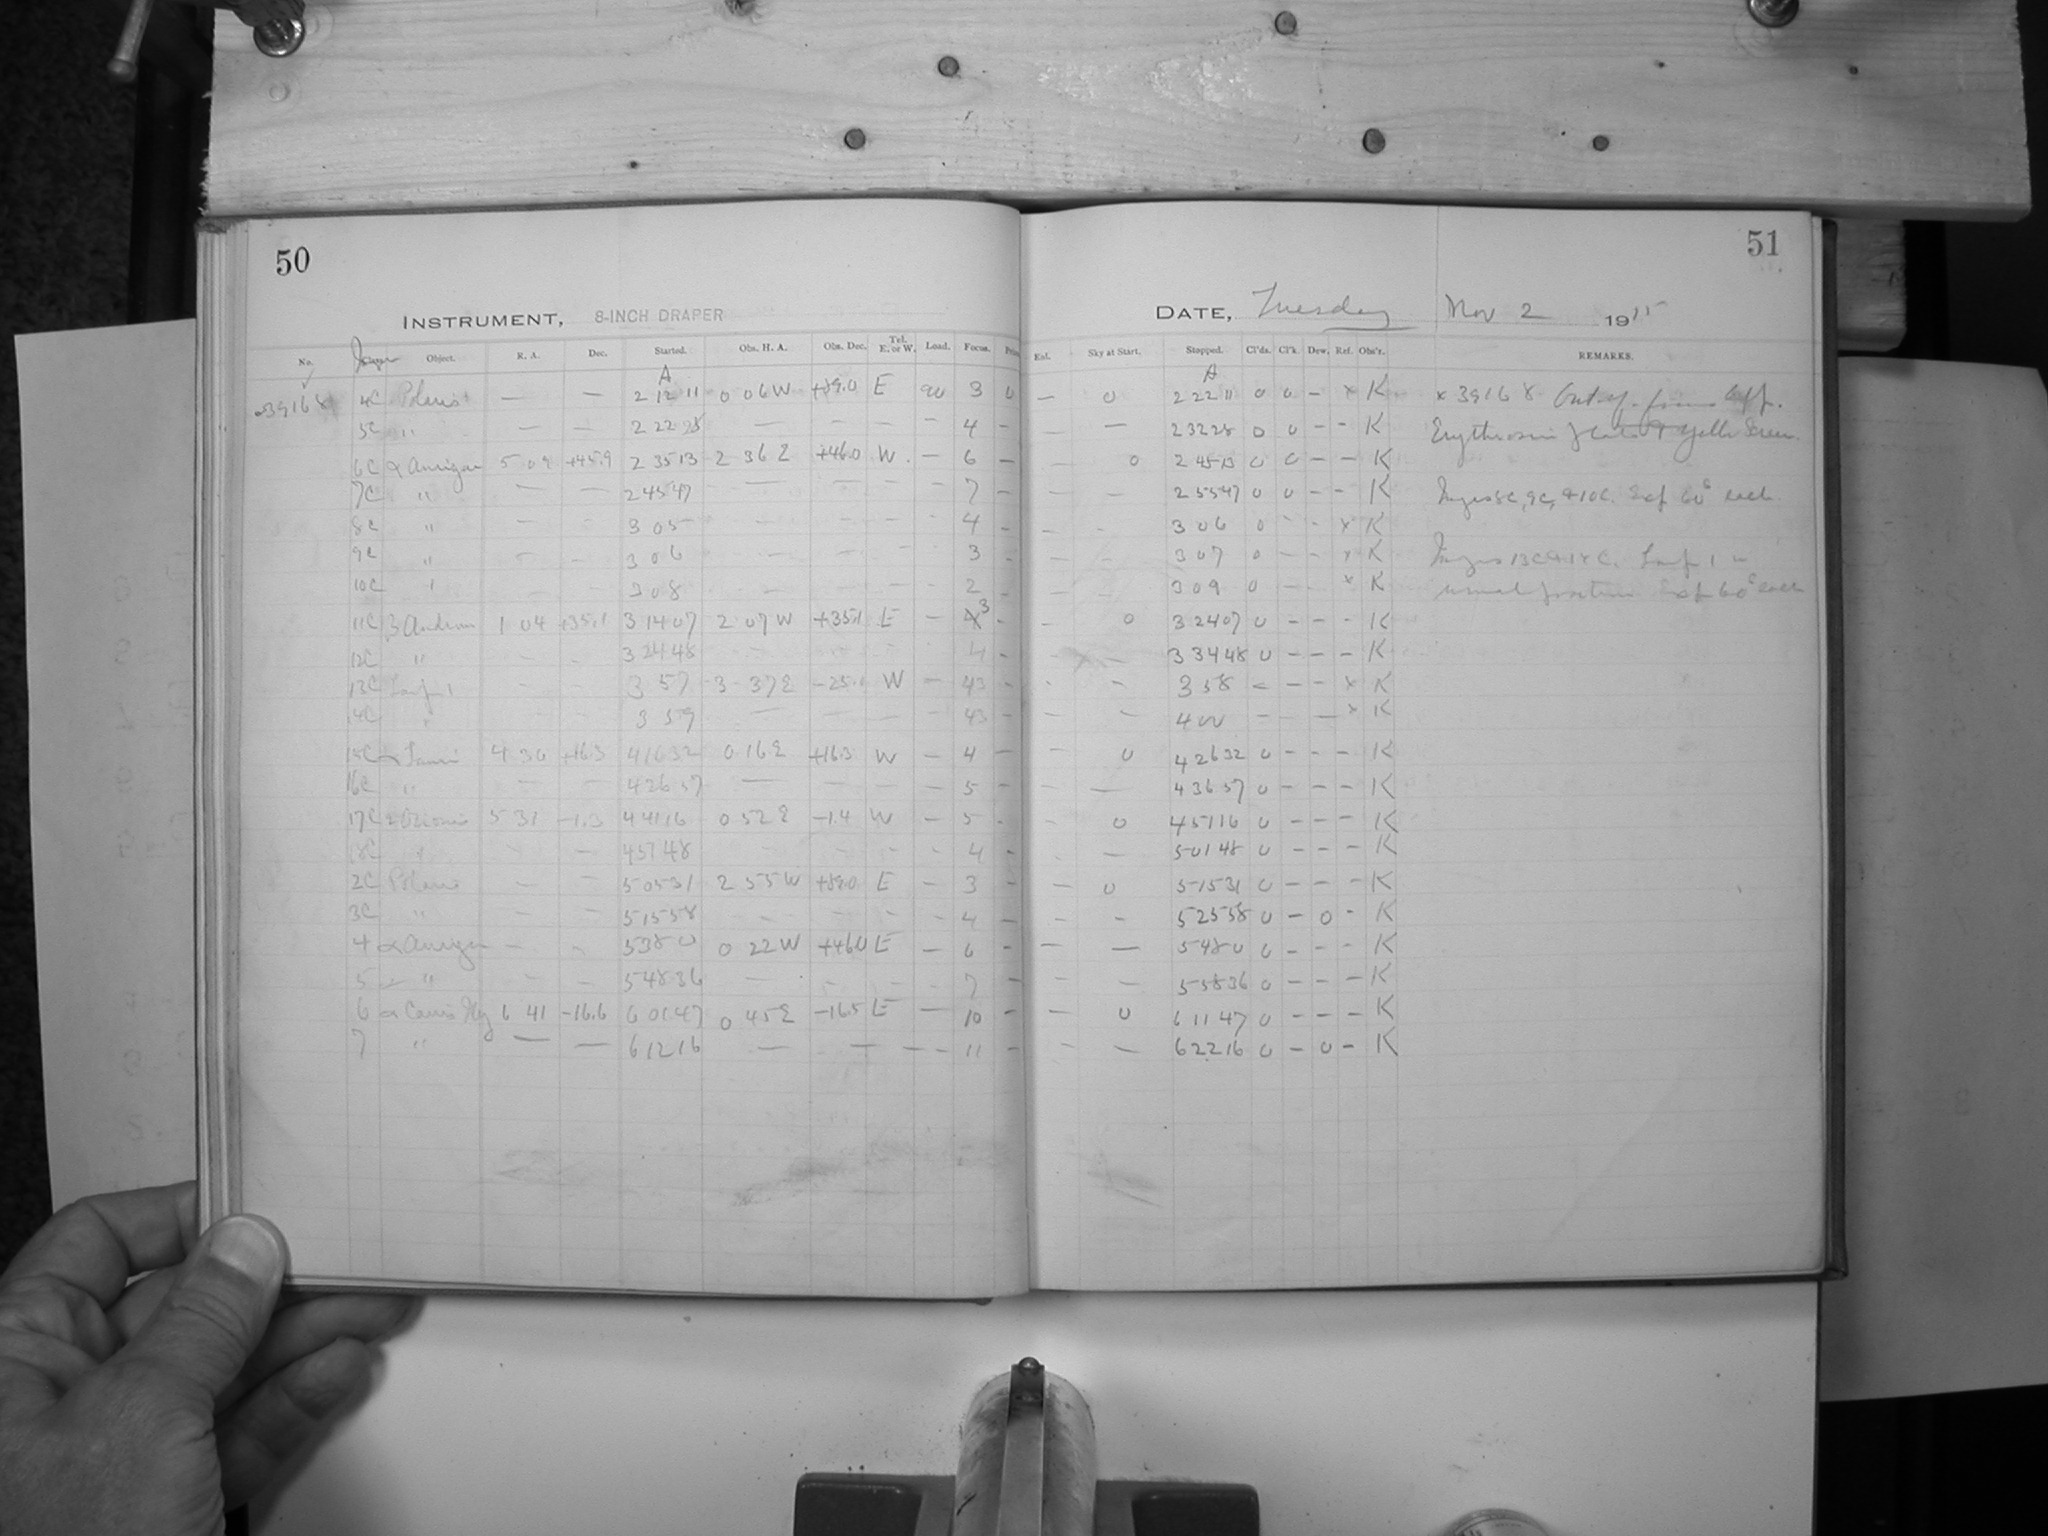 50
51
INSTRUMENT, 8-INCH DRAPER
DATE, Tuesday Nov 2 1915
No. Object. R. A. Dec. Started. Obs. H. A. Obs. Dec. Tel. E. or W. Load. Focus. Ent. Sky at Start. Stopped. Cl'ds. Cl'k. Dew. Ref. Obs'r. REMARKS.
A A
39168 4C Polaris — — 2 12 11 0 06 W +89.0 E 90 3 0 — 0 2 22 11 0 0 – x K x 39168
5C " — — 2 22 28 — — – – 4 – — — 2 32 28 0 0 – – K Erythrosin
6C α Aurigae 5 09 +45.9 2 35 13 2 36 E +46.0 W — 6 – — 0 2 45 13 0 0 – – K
7C " — — 2 45 47 — — – – 7 – — — 2 55 47 0 0 – – K 8C, 9C, + 10C. 60s each
8C " – – 3 05 – – – – 4 – — - 3 06 0 – – x K
9C " – – 3 06 – – – – 3 – — – 3 07 0 – – x K
10C " – – 3 08 – – – – 2 – – – 3 09 0 – – x K
11C β Androm 1 04 +35.1 3 14 07 2 07 W +35.1 E – 3 – – 0 3 24 07 0 – – – K
12C " – – 3 24 48 – – – – 4 – – 3 34 48 0 – – – K
13C – – 3 57 3 37 E W – 43 – – – 3 58 – – – x K
14C " – – 3 59 — – – – 43 – – – 4 00 – – – x K
15C α Tauri 4 30 +16.3 4 16 32 0 16 E +16.3 W – 4 – – 0 4 26 32 0 – – – K
16C " – – 4 26 57 — – – – 5 – – — 4 36 57 0 – – – K
17C Orionis 5 31 –1.3 4 41 16 0 52 E –1.4 W – 5 – – 0 4 51 16 0 – – – K
18C " – – 4 51 48 – – – – 4 – – — 5 01 48 0 – – – K
2C Polaris – – 5 05 31 2 55 W +89.0 E – 3 – – 0 5 15 31 0 – – – K
3C " – – 5 15 58 – – – – 4 – – – 5 25 58 0 – 0 – K
4 α Aurigae – – 5 38 0 0 22 W +46.0 E – 6 – – — 5 48 0 0 – – – K
5 " – – 5 48 36 — – – – 7 – – – 5 58 36 0 – – – K
6 α Canis Maj 6 41 –16.6 6 01 47 0 45 E –16.5 E – 10 – – 0 6 11 47 0 – – – K
7 " — — 6 12 16 — — – – 11 – – — 6 22 16 0 – 0 – K